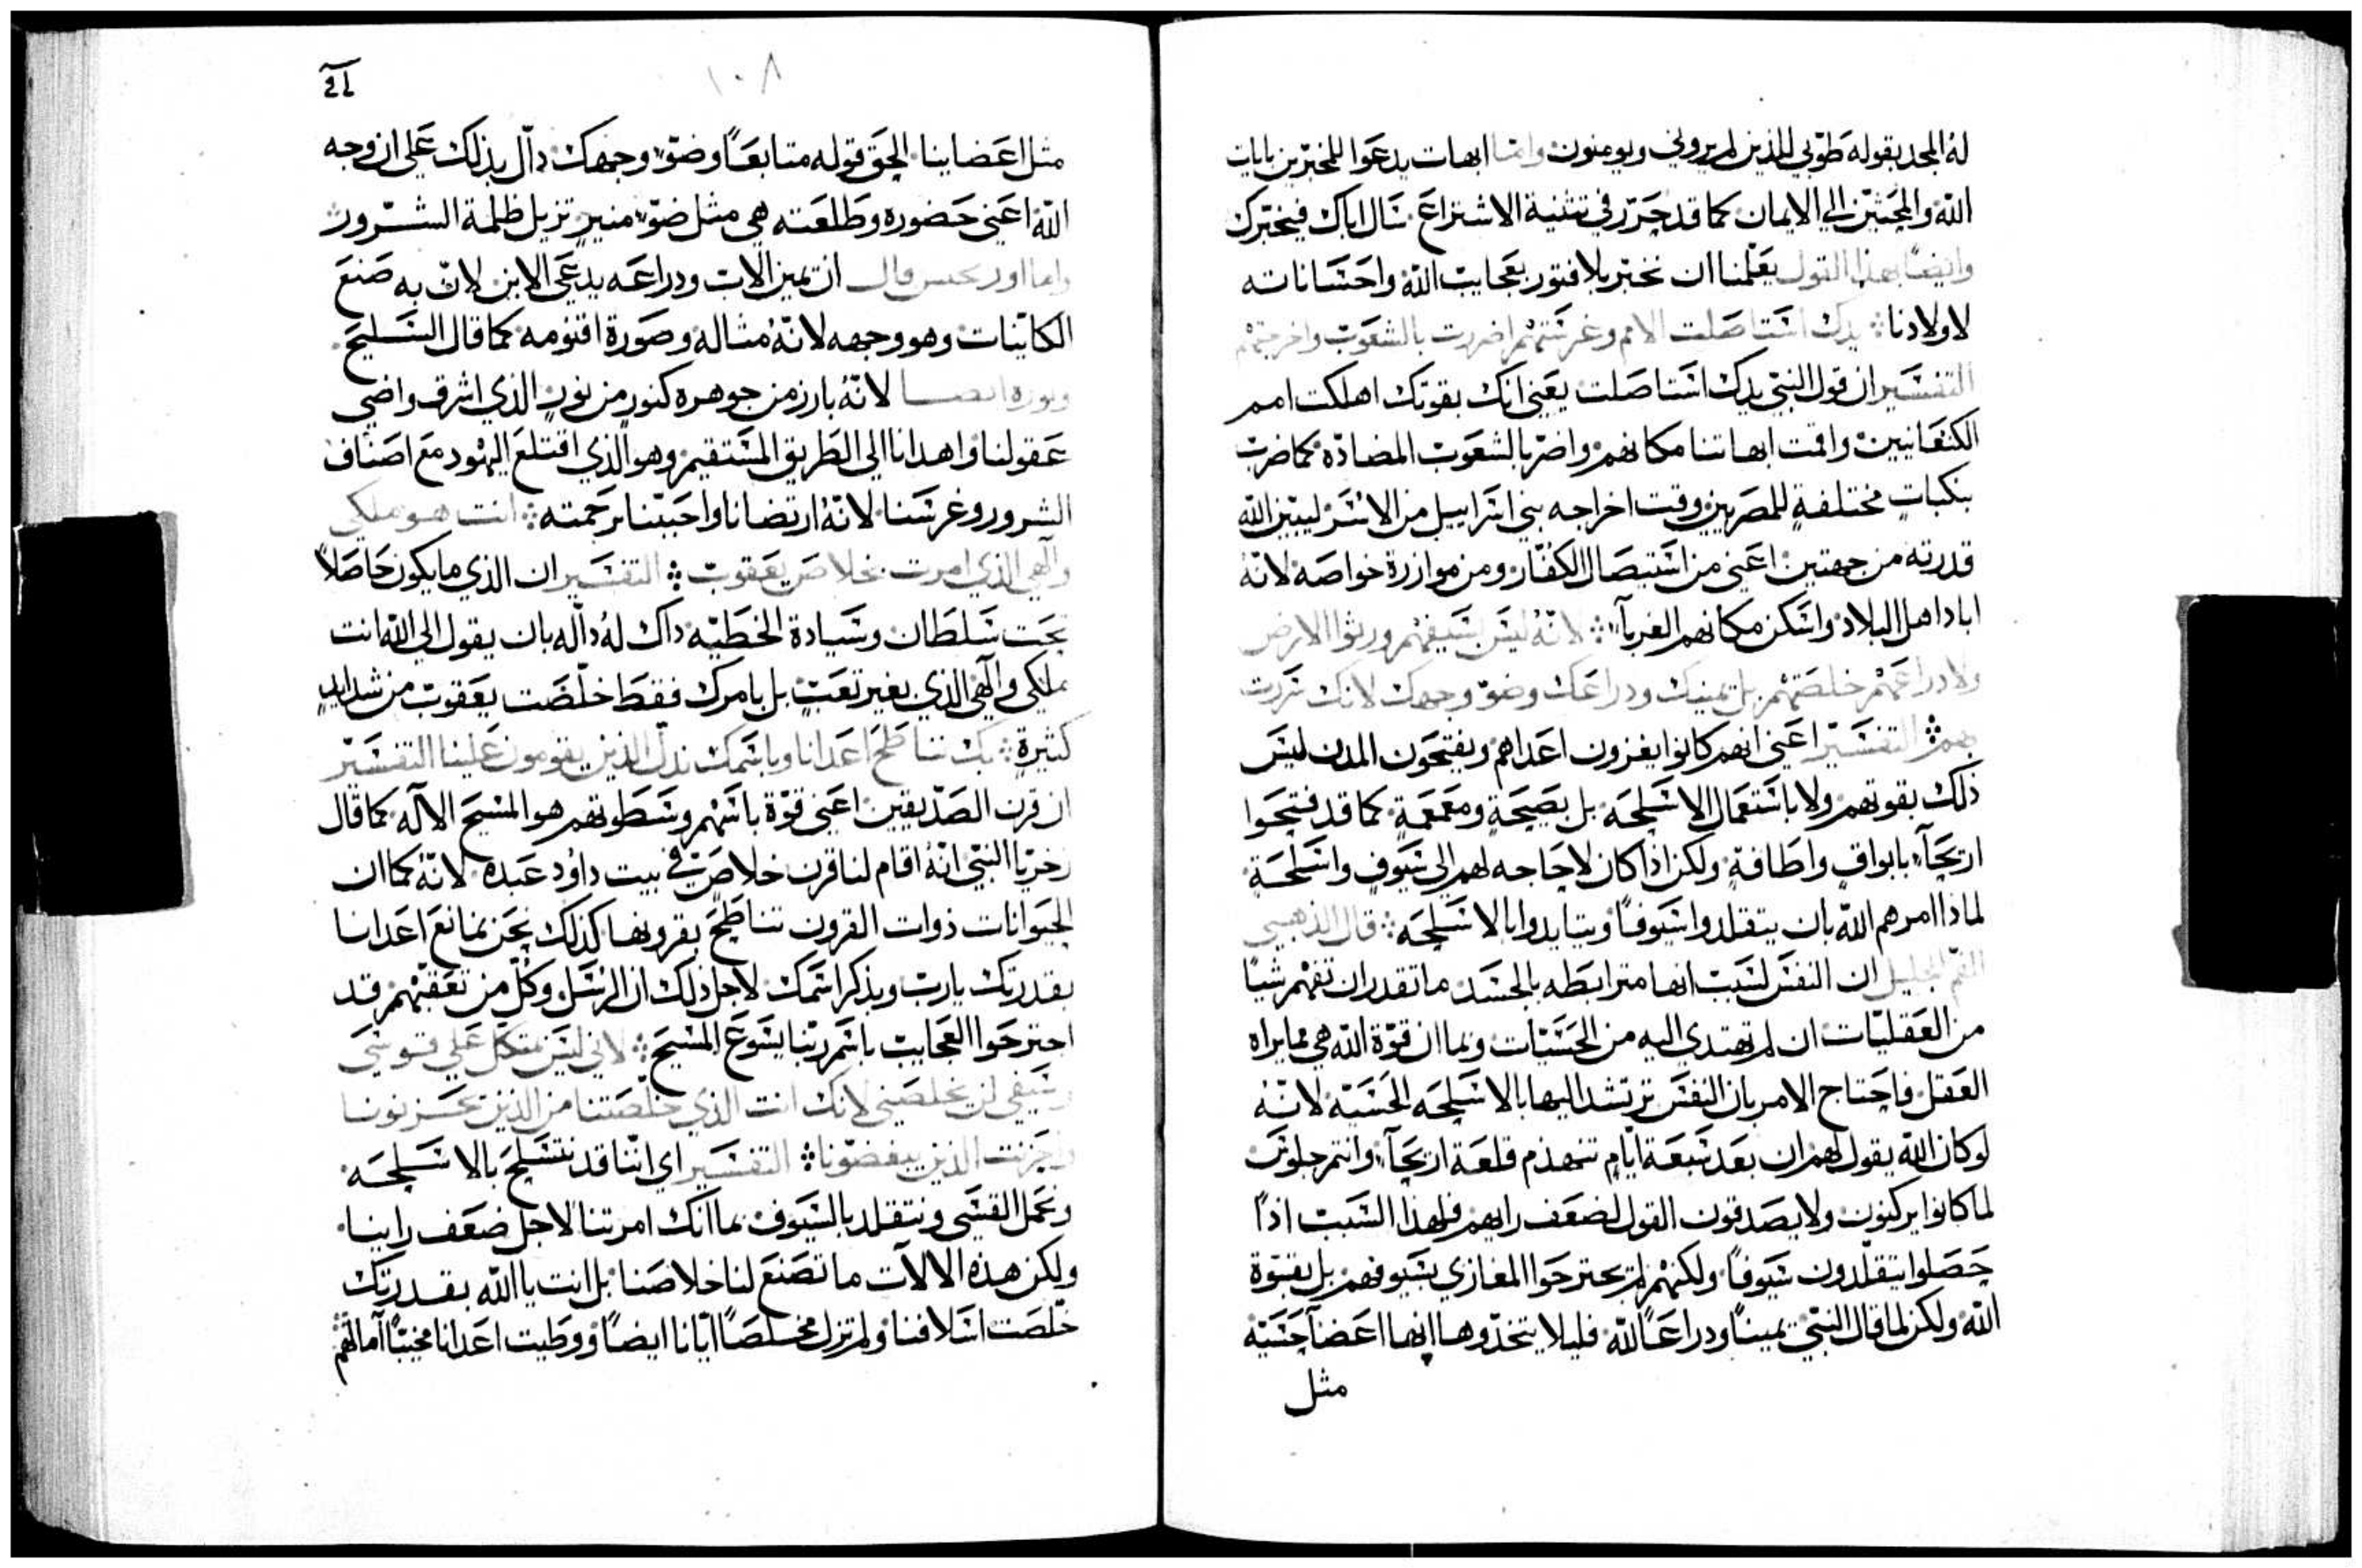 له المجد بقوله طوبي للذين لم يروني ويومنون وانما ابهات يدعوا المخبرين بايات
الله والمحثين الي الايمان كما قد حرر في تثنية الاشتراع سال اباك فيخبرك
وايضًا بهذا القول يعلمنا ان نخبر بلا فتور بعجايب الله واحساناته
لاولادنا يدك استاصلت الامم وغرستهم اضررت بالشعوب واخرجتهم
التفسير ان قول النبي يدك استاصلت يعني انك بقوتك اهلكت امم
الكنعانيين واقمت ابهاتنا مكانهم واضر بالشعوب المضادّه كما ضرب
بنكباتٍ مختلفةٍ للمصريين وقت اخراجه بني اسراييل من الاسر ليبين الله
قدرته من جهتين اعني من استيصال الكفّار ومن موازرة خواصه لانّه
اباد اهل البلاد واسكن مكانهم الغربآء لانّه ليس بسيفهم ورثوا الارض
ولا دراعهم خلصتهم بل يمينك ودراعك وضوّ وجهك لانك سررت
بهم التفسير اعني انهم كانوا يغزون اعداهم ويفتحون المدن ليس
ذلك بقوتهم ولا باستعمال الاسلحه بل بصيحةٍ ومعمعةٍ كما قد فتحوا
اريحآء بابواقٍ واطافةٍ ولكن اذا كان لا حاجه لهم الي سيوفٍ واسلحةٍ
لماذا امرهم الله بان يتقلدوا سيوفاً ويتايدوا بالاسلحه قال الذهبي
الفم الجليل ان النفس لسبب انها مترابطه بالجسد ما تقدر ان تفهم شياً
من العقليّات ان لم تهتدي اليه من الحسّيّات وبما ان قوّة الله هي مما يراه
العقل فاحتاج الامر بان النفس ترتشد اليها بالاسلحه الحسّيّه لانّه
لو كان الله يقول لهم ان بعد سبعة ايّامٍ تنهدم قلعة اريحآء وانتم جلوس
لما كانوا يركنون ولا يصدقون القول لضعف رايهم فلهذا السبب اذاً
حصلوا يتقلّدون سيوفاً ولكنهم لم يجترحوا المغازي بسيوفهم بل بقوّة
الله ولكن لما قال النبي يميناً ودراعاً لله فليلا يتخذوها انها اعضآ حسّيّه
مثل
١٠٨
مثل اعضاينا الحق قوله متابعاً وضوّ وجهك دالّ بذلك علي ان وجه
الله اعني حضوره وطلعته هي مثل ضوّ منيرٍ تزيل ظلمة الشرور
واما اوريجنس قال ان يمين الاب ودراعه يدعي الابن لانّ به صنع
الكاينات وهو وجهه لانّه مثاله وصورة اقنومه كما قال السليح
ونوره ايضا لانّه بارز من جوهره كنورٍ من نورٍ الذي اشرق واضي
عقولنا واهدانا الي الطريق المستقيم وهو الذي اقتلع اليهود مع اصناف
الشرور وغرسنا لانّه ارتضانا واحبّنا برحمته انت هو ملكي
والهي الذي امرت بخلاص يعقوب التفسير ان الذي ما يكون حاصلاً
تحت سلطان وسيادة الخطيّه داك له دالّه بان يقول الي الله انت
ملكي والهي الذي بغير تعبٍ بل بامرك فقط خلّصت يعقوب من شدايدٍ
كثيرةٍ بك نناطح اعدانا وباسمك نذل الذين يقومون علينا التفسير
ان قرن الصدّيقين اعني قوّة باسهم وسطوتهم هو المسيح الاله كما قال
زخريّا النبي انّه اقام لنا قرن خلاصٍ في بيت داود عبده لانّه كما ان
الحيوانات ذوات القرون تناطح بقرونها كذلك نحن نمانع اعدانا
بقدرتك يارب وبذكر اسمك لاجل ذلك ان الرسل وكلّ من تعقبّهم قد
اجترحوا العجايب باسم ربّنا يسوع المسيح لاني ليس متكل علي قوسي
وسيفي لن يخلصني لانك انت الذي خلّصتنا من الذين يحزنونا
واخزيت الذين يبغضونا التفسير اي اننا قد نتسلح بالاسلحه
ونحمل القسي ونتقلد بالسيوف بما انّك امرتنا لاجل ضعف راينا
ولكن هذه الالات ما تصنع لنا خلاصنا بل انت يا الله بقدرتك
خلّصت اسلافنا ولم تزل مخلصاً ايّانا ايضاً ووطيت اعدانا مخيّباً آمالهم